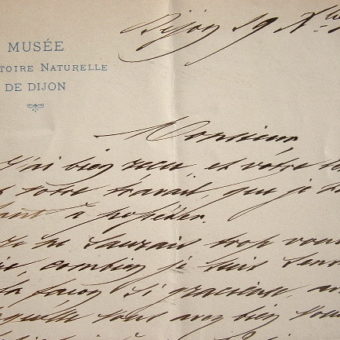 MUSÉE
TOIRE NATURELLE
DE DIJON
Dijon 19 X
Monsieur
J'ai bien reçu et votre
votre travail, que je
à posséder.
Je ne saurais trop vous
combien je suis
façon si gracieuse
laquelle vous avez bien